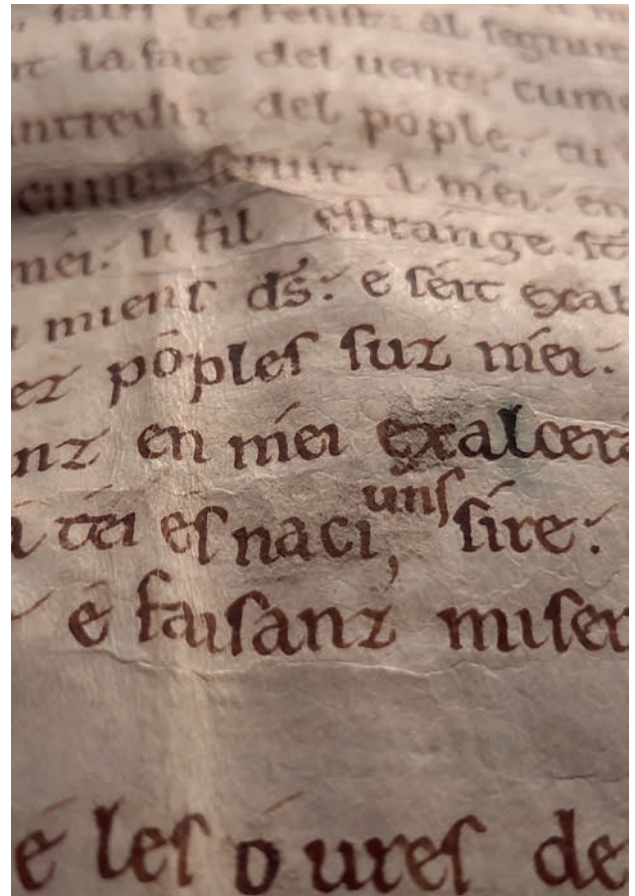 les al segnur
la face del uent: cume
del pople: tu
seruit a mei: en
mei: li fil estrange
miens ds: e seit exal
ez poples suz mei:
nz en mei exalcera
a tei es naciuns sire:
e faisanz miser
e les oures de